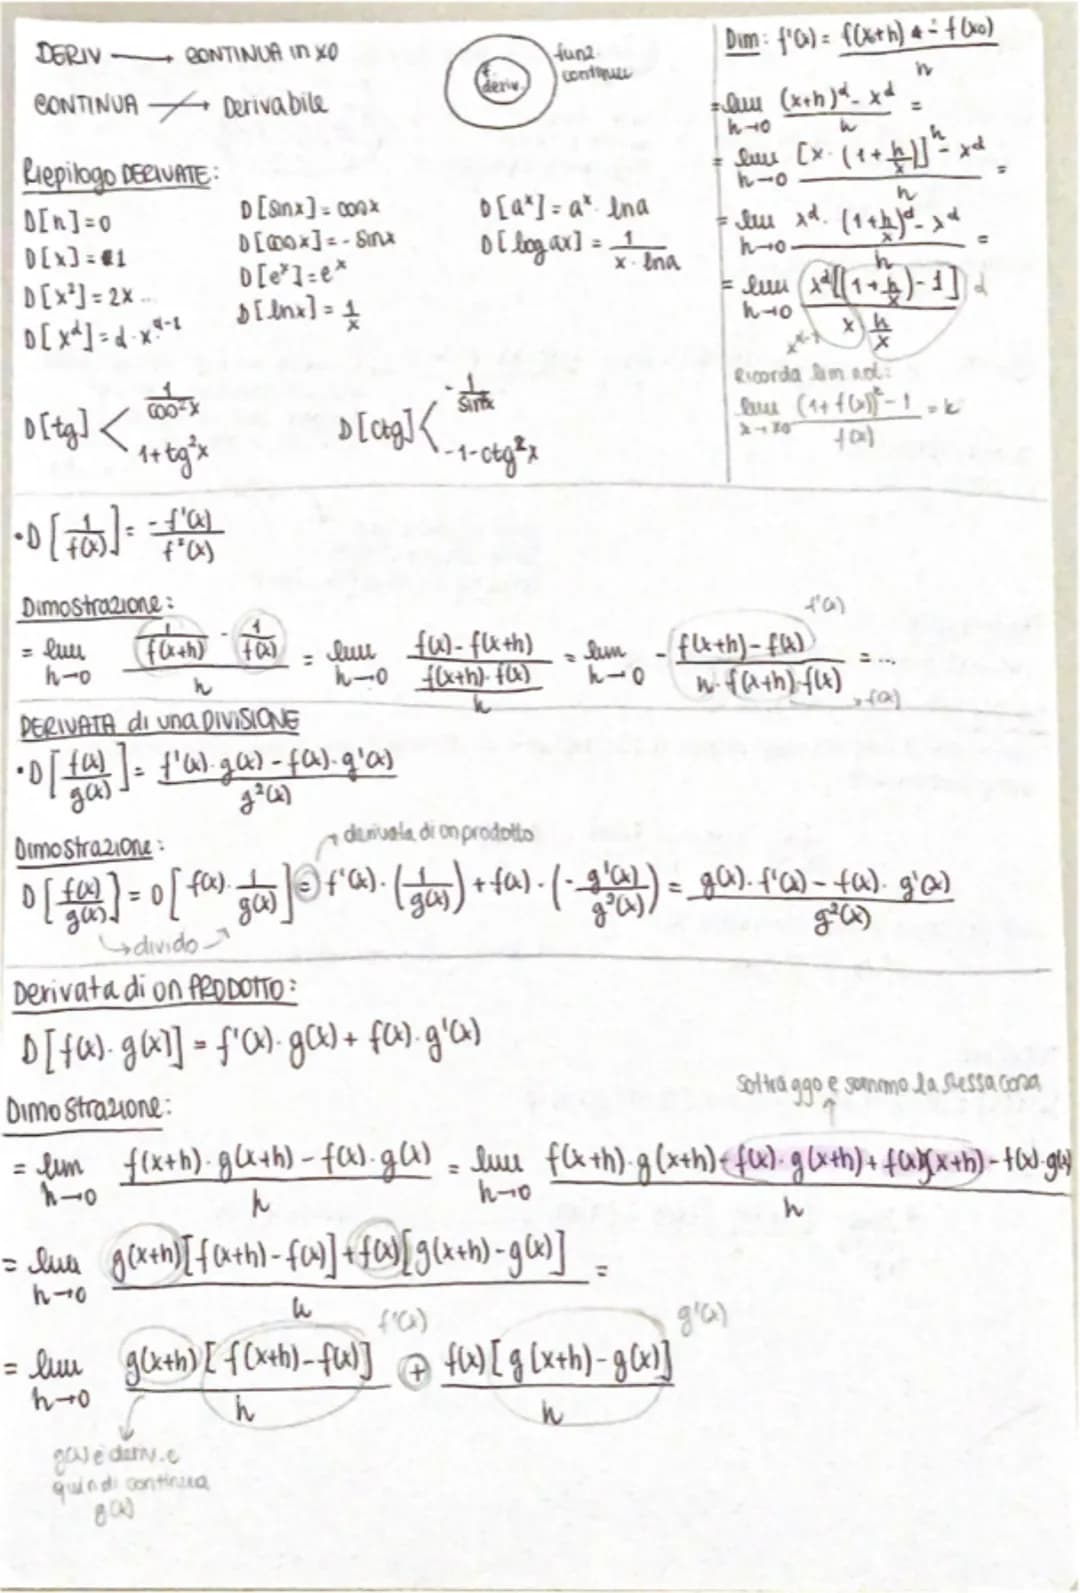 DERIV → CONTINUA in x0
CONTINUA ↛ Derivabile
f. deriv.
funz. continue
Riepilogo DERIVATE:
D[n]=0
D[x]=1
D[x²]=2x ...
D[x^α]=α·x^(α-1)
D[sinx]=cosx
D[cosx]=-sinx
D[e^x]=e^x
D[lnx]=1/x
D[a^x]=a^x·lna
D[log ax]=1/(x·lna)
D[tg] < 1/cos²x
1+tg²x
D[ctg] < -1/sin²x
-1-ctg²x
Dim: f'(x)= (f(x0+h) - f(x0))/h
= lim h→0 ((x+h)^α - x^α)/h =
= lim h→0 ([x·(1+h/x)]^h - x^α)/h =
= lim h→0 (x^α·(1+h/x)^α - x^α)/h =
= lim h→0 (x^α[(1+h/x)-1])/(x h/x) α
x^(α-1)
Ricorda lim not:
lim x→x0 ((1+f(x))^k - 1)/f(x) = k
•D[1/f(x)] = -f'(x)/f²(x)
Dimostrazione:
f'(x)
= lim h→0 (1/f(x+h) - 1/f(x))/h = lim h→0 ((f(x)-f(x+h))/(f(x+h)·f(x)))/h = lim h→0 -(f(x+h)-f(x))/(h·f(x+h)·f(x)) = ...
→f(x)
DERIVATA di una DIVISIONE
•D[f(x)/g(x)] = (f'(x)·g(x)-f(x)·g'(x))/g²(x)
Dimostrazione:
derivata di un prodotto
D[f(x)/g(x)] = D[f(x)·1/g(x)] = f'(x)·(1/g(x)) + f(x)·(-g'(x)/g²(x)) = (g(x)·f'(x)-f(x)·g'(x))/g²(x)
→divido
Derivata di un PRODOTTO:
D[f(x)·g(x)] = f'(x)·g(x)+f(x)·g'(x)
sottraggo e sommo la stessa cosa
Dimostrazione:
= lim h→0 (f(x+h)·g(x+h)-f(x)·g(x))/h = lim h→0 (f(x+h)·g(x+h)-f(x)·g(x+h)+f(x)g(x+h)-f(x)·g(x))/h
= lim h→0 (g(x+h)[f(x+h)-f(x)]+f(x)[g(x+h)-g(x)])/h =
f'(x) g'(x)
= lim h→0 g(x+h)[f(x+h)-f(x)]/h + f(x)[g(x+h)-g(x)]/h
g(x) è deriv. e
quindi continua
g(x)